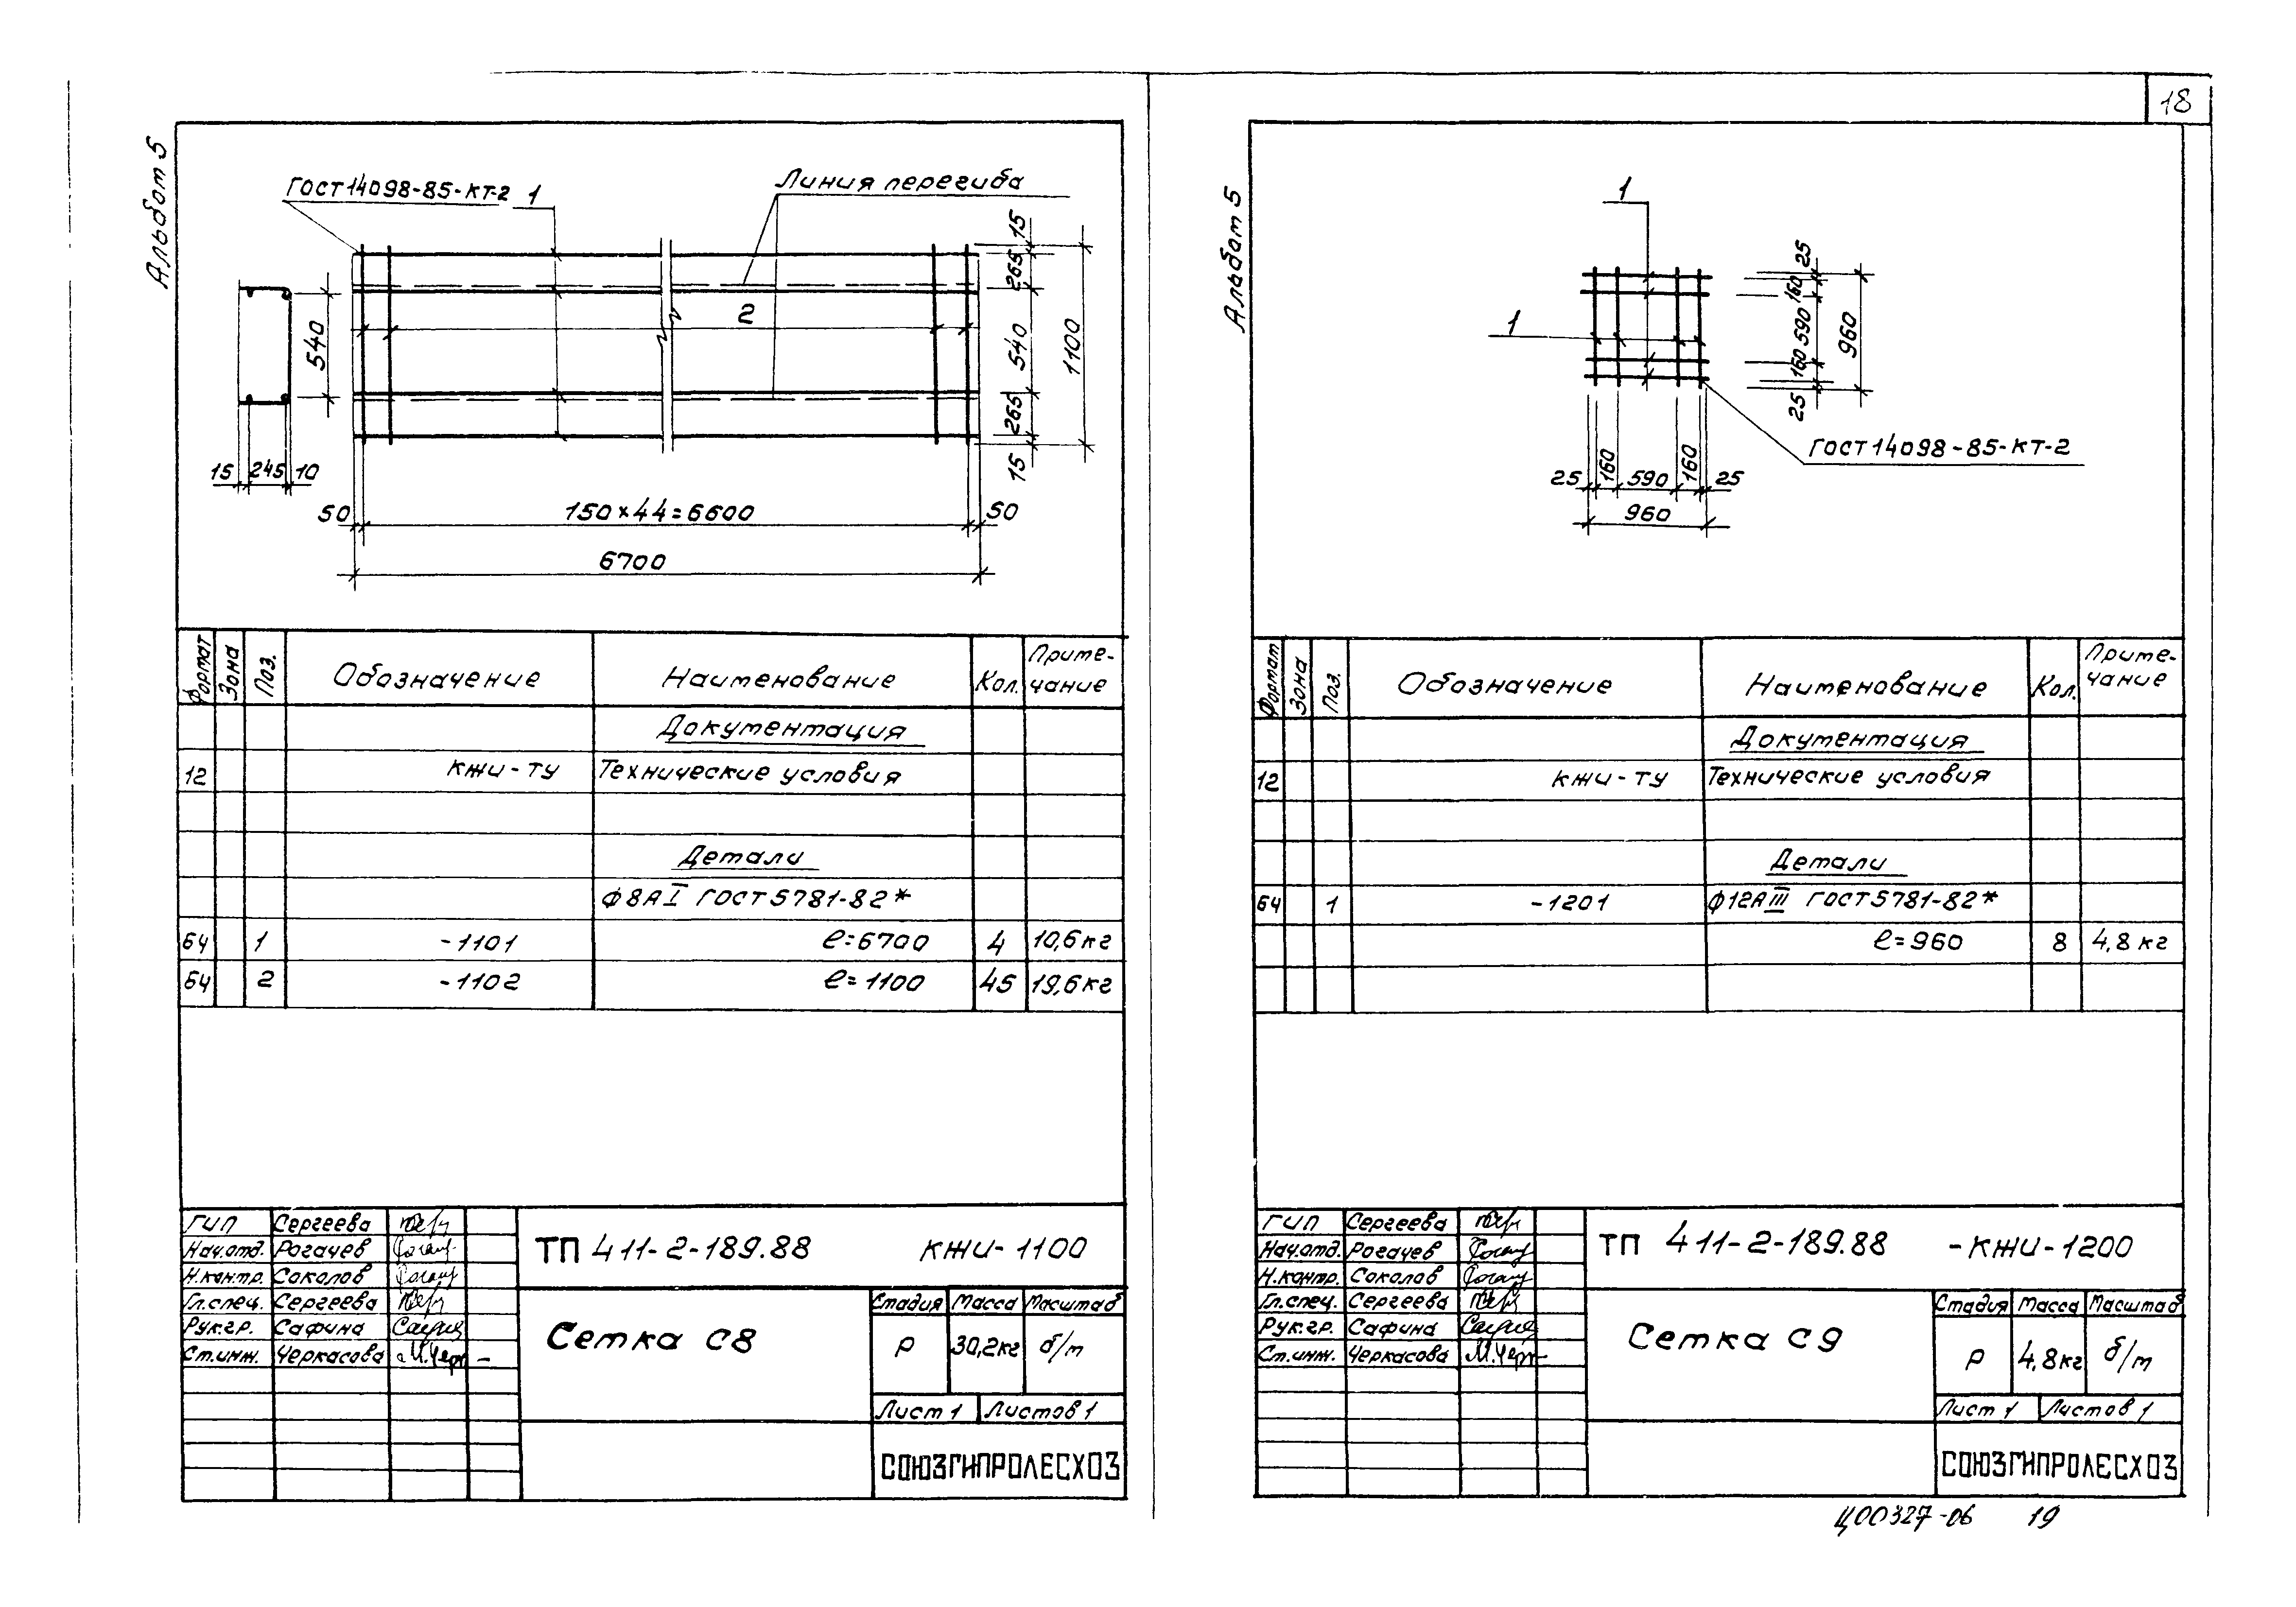 18
Альбом 5
ГОСТ 14098-85-КТ-2
1
Линия перегиба
15
265
540
265
15
1100
2
540
15 245 10
50 150×44=6600 50
6700
Формат Зона Поз. Обозначение Наименование Кол. Примечание
Документация
12 КЖИ-ТУ Технические условия
Детали
Ф8АI ГОСТ 5781-82*
БЧ 1 -1101 ℓ=6700 4 10,6кг
БЧ 2 -1102 ℓ=1100 45 19,6кг
ГИП Сергеева
Нач.отд. Рогачев
Н.контр. Соколов
Гл.спец. Сергеева
Рук.гр. Сафина
Ст.инж. Черкасова
ТП 411-2-189.88 КЖИ-1100
Сетка С8
Стадия Масса Масштаб
Р 30,2кг б/м
Лист 1 Листов 1
СОЮЗГИПРОЛЕСХОЗ
Альбом 5
1
1
25
160
590
160
25
960
ГОСТ 14098-85-КТ-2
25 160 590 160 25
960
Формат Зона Поз. Обозначение Наименование Кол. Примечание
Документация
12 КЖИ-ТУ Технические условия
Детали
БЧ 1 -1201 Ф12АIII ГОСТ 5781-82*
ℓ=960 8 4,8кг
ГИП Сергеева
Нач.отд. Рогачев
Н.контр. Соколов
Гл.спец. Сергеева
Рук.гр. Сафина
Ст.инж. Черкасова
ТП 411-2-189.88 -КЖИ-1200
Сетка С9
Стадия Масса Масштаб
Р 4,8кг б/м
Лист 1 Листов 1
СОЮЗГИПРОЛЕСХОЗ
Ц00327-06 19